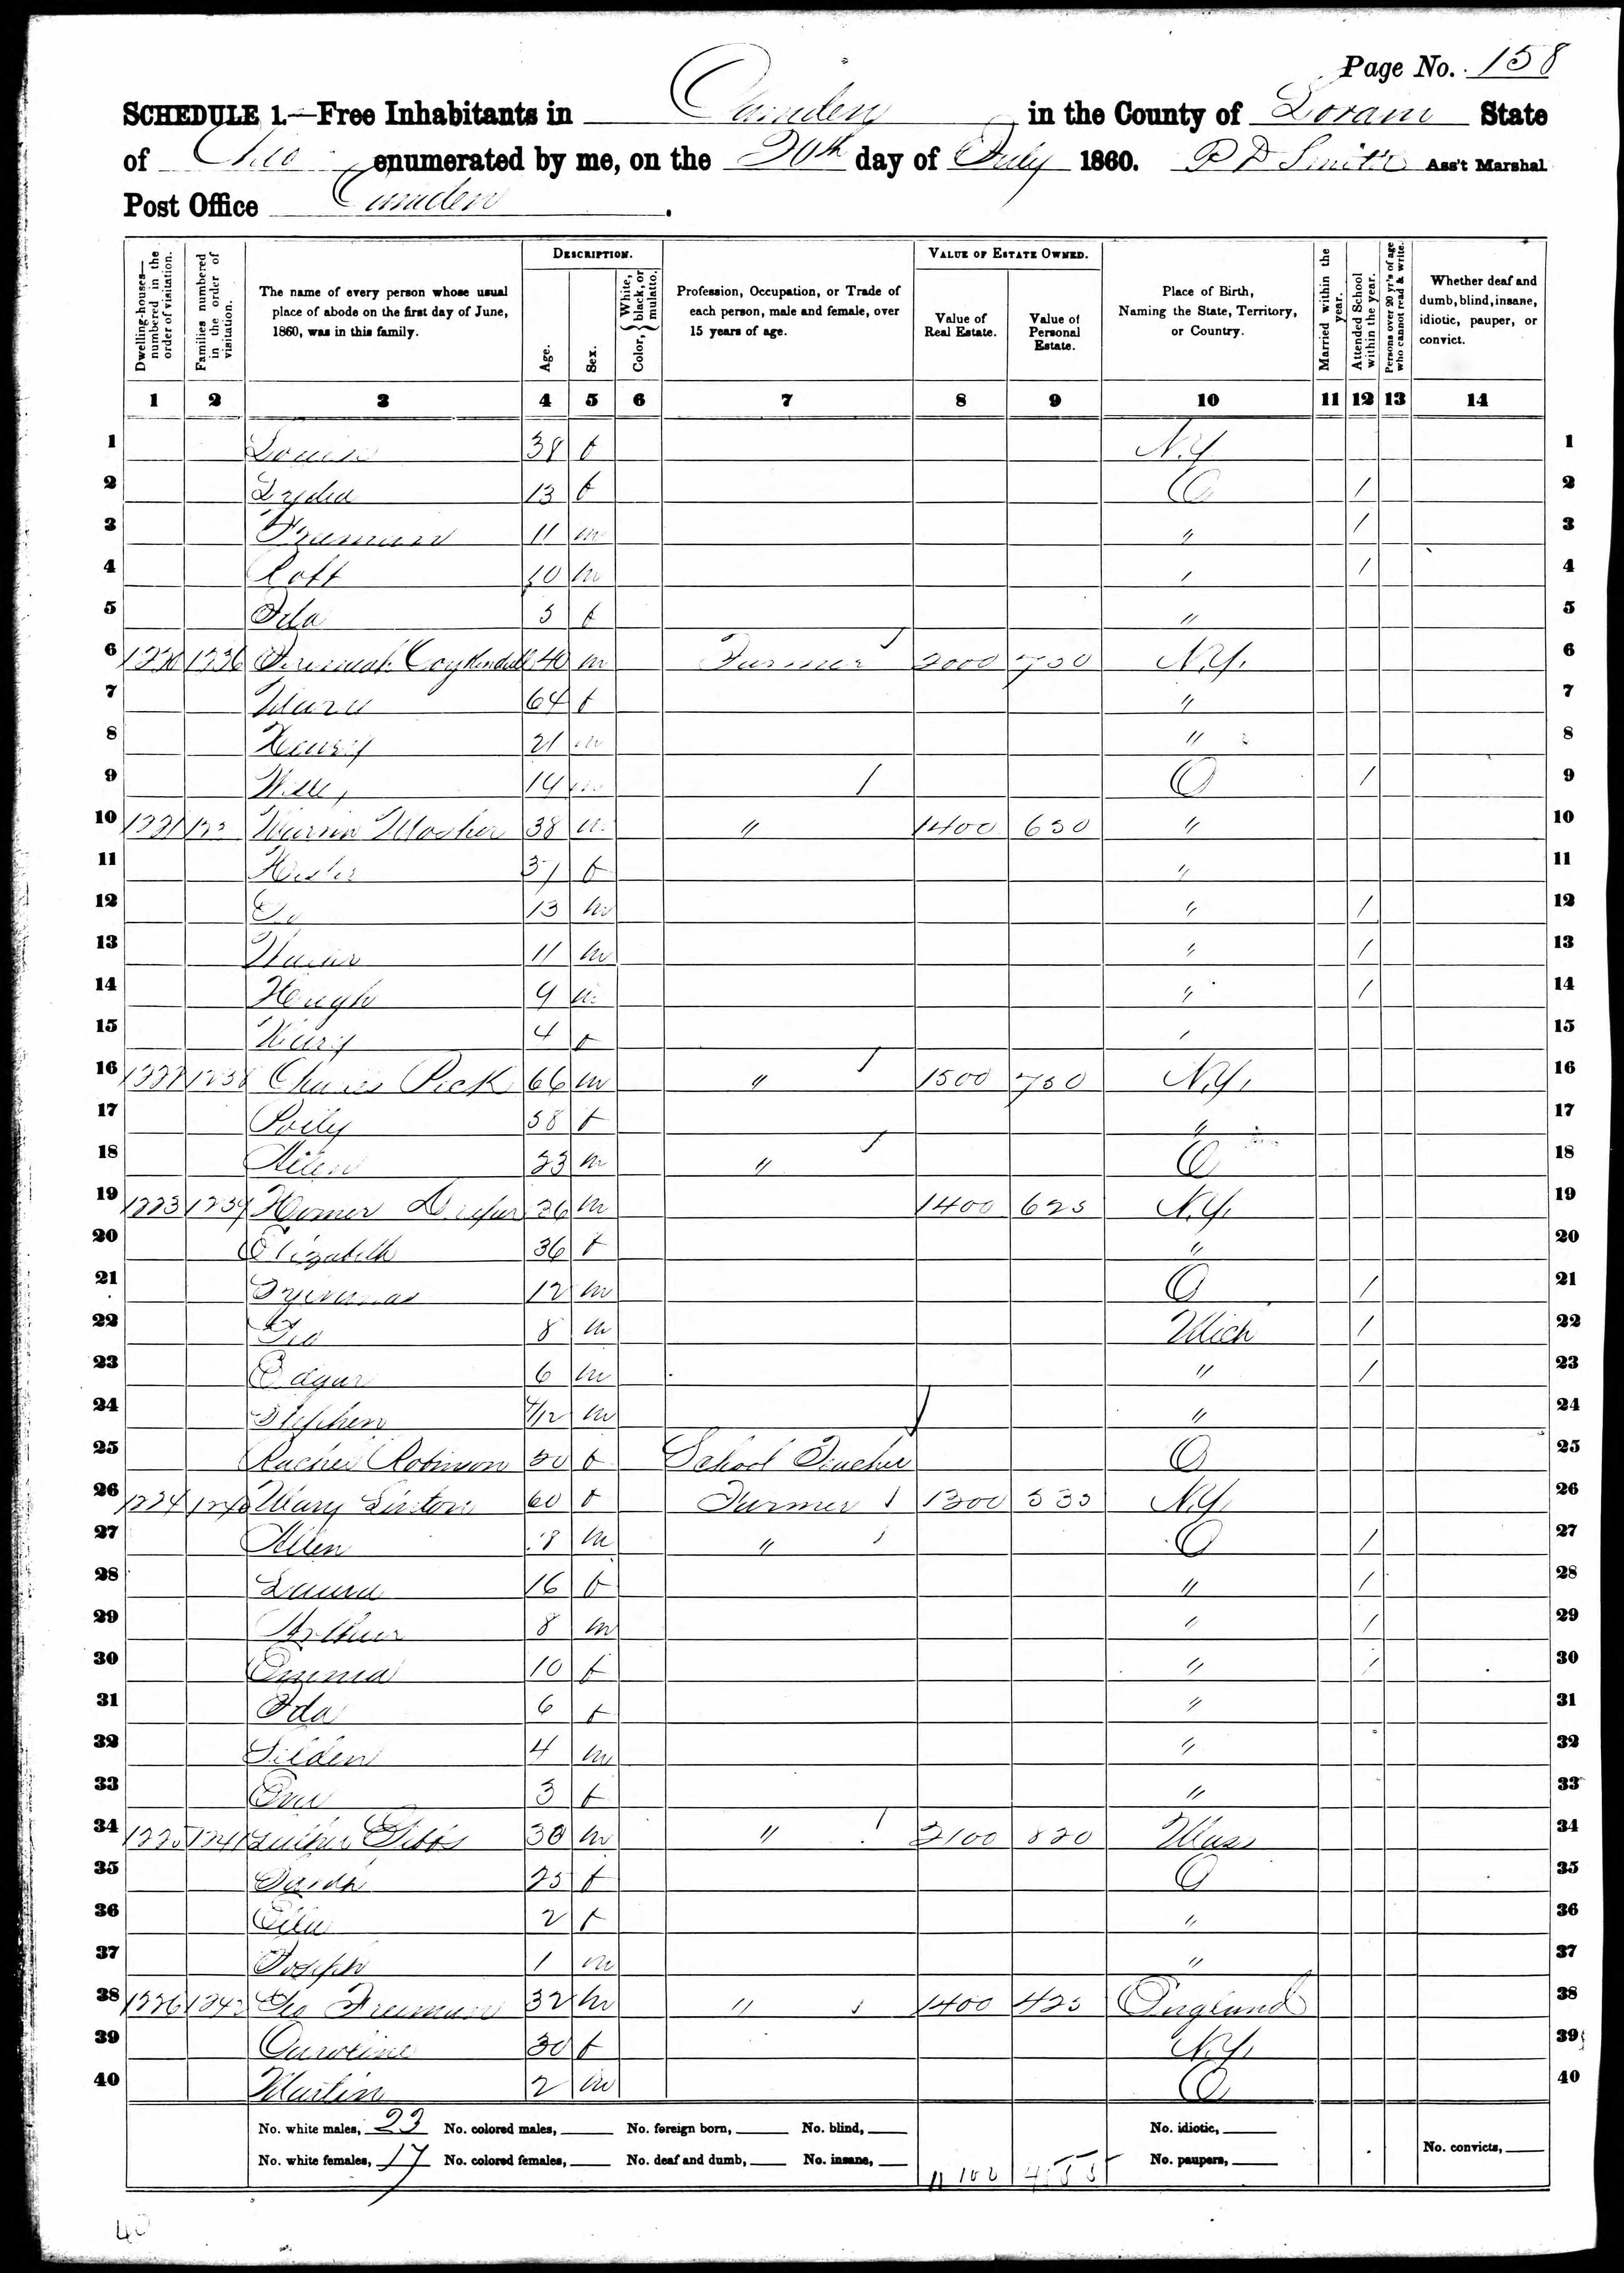 Page No. 158
SCHEDULE 1.—Free Inhabitants in Camden in the County of Lorain State
of Ohio enumerated by me, on the 20th day of July 1860. P D Smith Ass't Marshal
Post Office Camden.
Dwelling-houses—numbered in the order of visitation. Families numbered in the order of visitation. The name of every person whose usual place of abode on the first day of June, 1860, was in this family. DESCRIPTION. Age. Sex. Color, { White, black, or mulatto. Profession, Occupation, or Trade of each person, male and female, over 15 years of age. VALUE OF ESTATE OWNED. Value of Real Estate. Value of Personal Estate. Place of Birth, Naming the State, Territory, or Country. Married within the year. Attended School within the year. Persons over 20 yr's of age who cannot read & write. Whether deaf and dumb, blind, insane, idiotic, pauper, or convict.
1 2 3 4 5 6 7 8 9 10 11 12 13 14
1 Louisa 38 f N.Y 1
2 Lydia 13 f O / 2
3 Freeman 11 m " / 3
4 10 m / 4
5 Ida 5 f " 5
6 1220 1236 Jeremiah Coykendall 40 m Farmer 2000 750 N.Y. 6
7 64 f " 7
8 Henry 21 m " 8
9 14 m O / 9
10 1221 Warren Mosher 38 m " 1400 650 " 10
11 Hester 37 f " 11
12 13 m " / 12
13 11 m " / 13
14 Hough 9 m " / 14
15 Mary 4 f 15
16 1222 1238 Charles Peck 66 m " 1500 750 N.Y. 16
17 Polly 58 f " 17
18 Allen 23 m " O 18
19 1223 1239 Homer 36 m 1400 625 N.Y. 19
20 Elizabeth 36 f " 20
21 12 m O / 21
22 Geo 8 m Mich / 22
23 Edgar 6 m " / 23
24 Stephen 4/12 m " 24
25 Rachel Robinson 20 f School Teacher O 25
26 1224 1240 Mary Linton 60 f Farmer 1300 535 N.Y 26
27 Allen 18 m " O / 27
28 Laura 16 f " / 28
29 Arthur 8 m " / 29
30 Emma 10 f " / 30
31 Ida 6 f " 31
32 Selden 4 m " 32
33 Eva 3 f " 33
34 1225 1241 Luther Gibbs 30 m " 2100 820 Mass 34
35 Sarah 25 f O 35
36 Ella 2 f " 36
37 Joseph 1 m " 37
38 1226 1242 Geo Freeman 32 m " 1400 425 England 38
39 Caroline 30 f N.Y. 39
40 Martin 2 m O 40
No. white males, 23 No. colored males, No. foreign born, No. blind, No. idiotic,
No. white females, 17 No. colored females, No. deaf and dumb, No. insane, 11100 No. paupers, No. convicts,
40